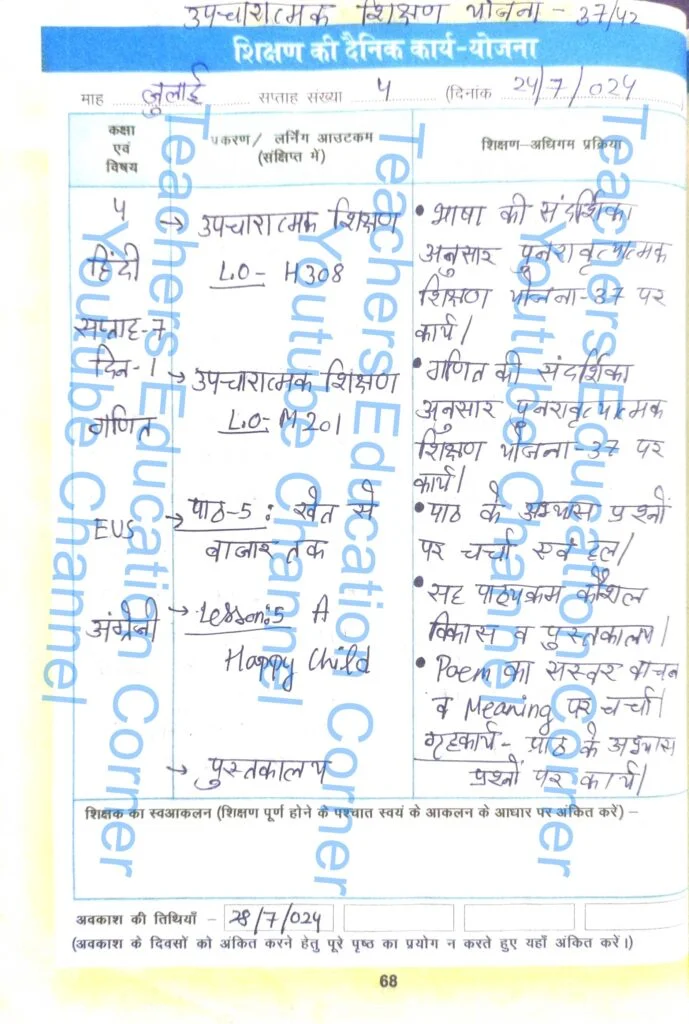 उपचारात्मक शिक्षण योजना - 37/42
शिक्षण की दैनिक कार्य-योजना
माह जुलाई सप्ताह संख्या 4 (दिनांक 24/7/024
कक्षा
एवं
विषय
प्रकरण/ लर्निंग आउटकम
(संक्षिप्त में)
शिक्षण-अधिगम प्रक्रिया
4
हिंदी
सप्ताह-7
दिन-1
गणित
EVS
अंग्रेजी
→ उपचारात्मक शिक्षण
L.O- H308
→ उपचारात्मक शिक्षण
L.O- M201
→ पाठ-5 : खेत से
बाजार तक
→ Lesson:5 A
Happy Child
→ पुस्तकालय
• भाषा की संदर्शिका
अनुसार पुनरावृत्यात्मक
शिक्षण योजना-37 पर
कार्य।
• गणित की संदर्शिका
अनुसार पुनरावृत्यात्मक
शिक्षण योजना-37 पर
कार्य।
• पाठ के अभ्यास प्रश्नों
पर चर्चा एवं हल।
• सह पाठ्यक्रम कौशल
विकास व पुस्तकालय।
• Poem का सस्वर वाचन
व Meaning पर चर्चा।
गृहकार्य - पाठ के अभ्यास
प्रश्नों पर कार्य।
शिक्षक का स्वआकलन (शिक्षण पूर्ण होने के पश्चात स्वयं के आकलन के आधार पर अंकित करें) –
अवकाश की तिथियाँ – 28/7/024
(अवकाश के दिवसों को अंकित करने हेतु पूरे पृष्ठ का प्रयोग न करते हुए यहाँ अंकित करें।)
68
Teachers Education Corner
Youtube Channel
Teachers Education Corner
Youtube Channel
Teachers Education Corner
Youtube Channel